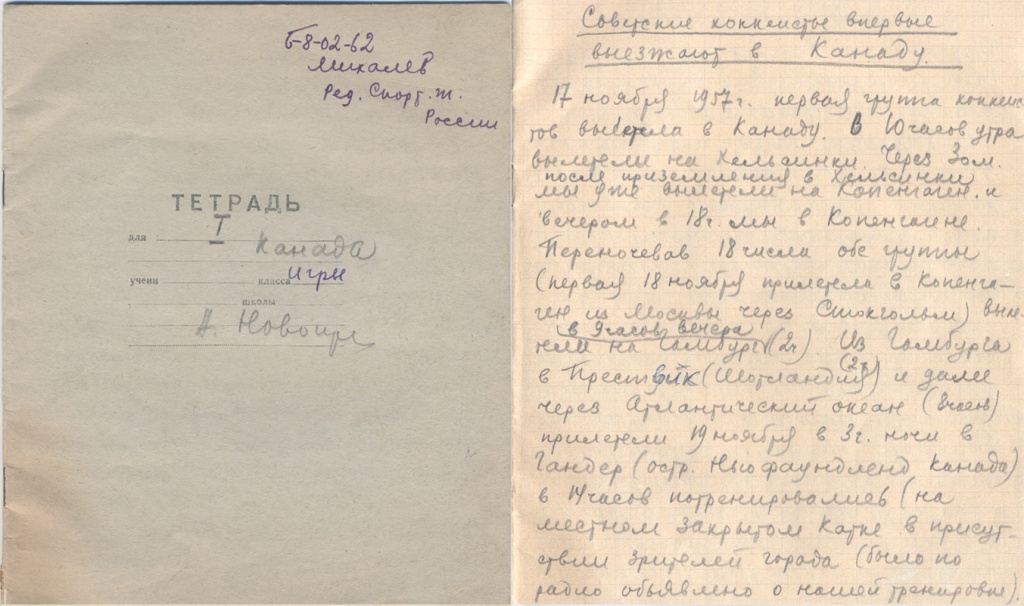 Б-8-02-62
Михалев
Ред. Спорт. ж.
России
ТЕТРАДЬ
I
для
Канада
учени класса игры
школы
А. Новокр
Советские хоккеисты впервые
выезжают в Канаду.
17 ноября 1957 г. первая группа хоккеис
тов вылетела в Канаду. В 10 часов утра
вылетели на Хельсинки. Через 30 м.
после приземления в Хельсинки
мы уже вылетели на Копенгаген. и
вечером в 18 г. мы в Копенгагене.
Переночевав 18 числа обе группы
(первая 18 ноября прилетела в Копенга-
ген из Москвы через Стокгольм) выле-
в 9 часов вечера
тели на Гамбург (2ч). Из Гамбурга
(2ч)
в Прествик (Шотландия) и далее
через Атлантический океан (8 часов)
прилетели 19 ноября в 3 г. ночи в
Гандер (остр. Ньюфаундленд Канада)
в 14 часов потренировались (на
местном закрытом катке в присут-
ствии зрителей города (было по
радио объявлено о нашей тренировке).